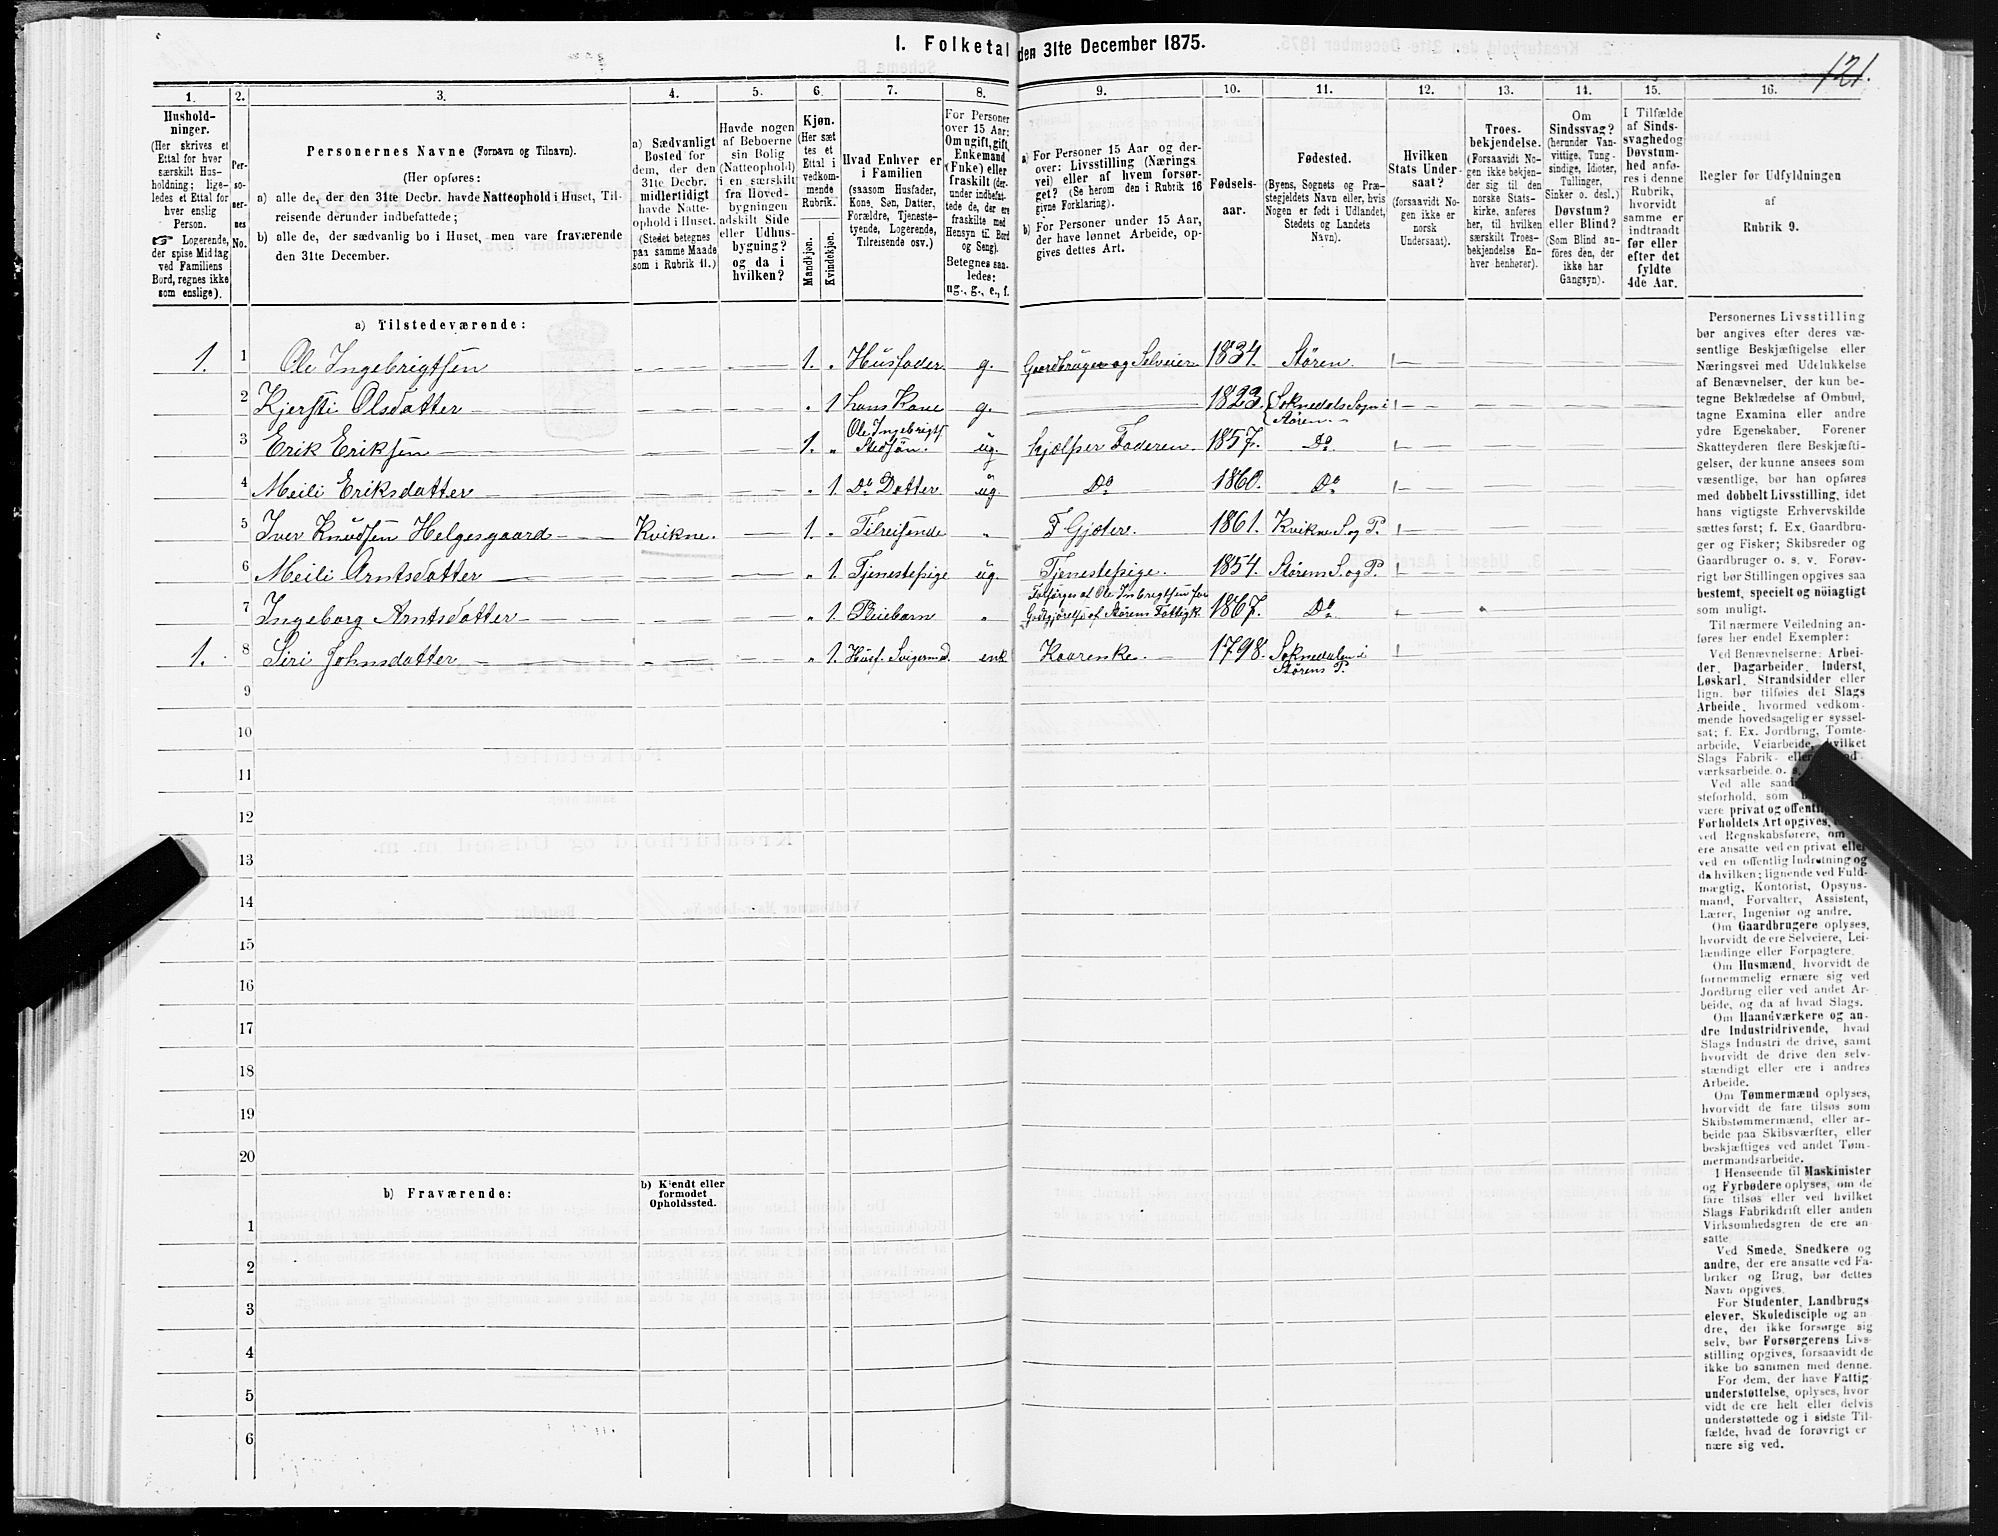 121.
I. Folketal den 31te December 1875.
1. 2. 3. 4. 5. 6. 7. 8. 9. 10. 11. 12. 13. 14. 15. 16.
Hushold-
ninger.
(Her skrives et
Ettal for hver
særskilt Hus-
holdning; lige-
ledes et Ettal for
hver enslig
Person.
☞ Logerende,
der spise Middag
ved Familiens
Bord, regnes ikke
som enslige).
Per-
so-
ner-
nes
No.
Personernes Navne (Fornavn og Tilnavn).
(Her opføres:
a) alle de, der den 31te Decbr. havde Natteophold i Huset, Til-
reisende derunder indbefattede;
b) alle de, der sædvanlig bo i Huset, men vare fraværende
den 31te December.
a) Sædvanligt
Bosted for
dem, der den
31te Decbr.
midlertidigt
havde Natte-
ophold i Huset.
(Stedet betegnes
paa samme Maade
som i Rubrik 11.)
Havde nogen
af Beboerne
sin Bolig
(Natteophold)
i en særskilt
fra Hoved-
bygningen
adskilt Side
eller Udhus-
bygning?
og da i
hvilken?
Kjøn.
(Her sæt-
tes et
Ettal i
vedkom-
mende
Rubrik.)
Mandkjøn.
Kvindekjøn.
Hvad Enhver er
i Familien
(saasom Husfader,
Kone, Søn, Datter,
Forældre, Tjeneste-
tyende, Logerende,
Tilreisende osv.)
For Personer
over 15 Aar:
Om ugift, gift,
Enkemand
(Enke) eller
fraskilt (der-
under indbefat-
tede de, der ere
fraskilte med
Hensyn til Bord
og Seng).
Betegnes saa-
ledes:
ug., g., e., f.
a) For Personer 15 Aar og der-
over: Livsstilling (Nærings-
vei) eller af hvem forsør-
get? (Se herom den i Rubrik 16
givne Forklaring).
b) For Personer under 15 Aar,
der have lønnet Arbeide, op-
gives dettes Art.
Fødsels-
aar.
Fødested.
(Byens, Sognets og Præ-
stegjeldets Navn eller, hvis
Nogen er født i Udlandet,
Stedets og Landets
Navn).
Hvilken
Stats Under-
saat?
(forsaavidt No-
gen ikke er
norsk
Undersaat).
Troes-
bekjendelse.
(Forsaavidt No-
gen ikke bekjen-
der sig til den
norske Stats-
kirke, anføres
her, til hvilken
særskilt Troes-
bekjendelse En-
hver henhører).
Om
Sindssvag?
(herunder Van-
vittige, Tung-
sindige, Idioter,
Tullinger,
Sinker o. desl.)
Døvstum?
eller Blind?
(Som Blind an-
føres den, der
ikke har
Gangsyn).
I Tilfælde
af Sinds-
svaghed og
Døvstum-
hed anfø-
res i denne
Rubrik,
hvorvidt
samme er
indtraadt
før eller
efter det
fyldte
4de Aar.
Regler for Udfyldningen
af
Rubrik 9.
a) Tilstedeværende:
1. 1 Ole Ingebrigtsen 1. „ Husfader g. Gaardbruger og Selveier 1834. Støren.
2 Kjersti Olsdatter „ 1 hans Kone g. 1823. Soknedals Sogn i Støren.
3 Erik Eriksen 1. „ Ole Ingebrigts. Stedsøn. ug. hjælper Faderen. 1857. Do
4 Meili Eriksdatter „ 1. Do Datter ug. Do 1860. Do
5 Iver Knudsen Helgesgaard Kvikne. 1. „ Tilreisende „ F Gjæter. 1861. Kvikne S. og P.
6 Meili Arntsdatter „ 1. Tjenestepige ug. Tjenestepige. 1854. Størens S. og P.
7 Ingeborg Arntsdatter „ 1. Pleiebarn „ Forsørges af Ole Inbregtsen for Godtgjørelse af Størens Fattigk. 1867. Do
1. 8 Siri Johnsdatter „ 1. Husf. Svigermod. enk Kaarenke. 1798. Soknedalen i Størens P.
9
10
11
12
13
14
15
16
17
18
19
20
b) Fraværende:
b) Kjendt eller
formodet
Opholdssted.
1
2
3
4
5
6
Personernes Livsstilling
bør angives efter deres væ-
sentlige Beskjæftigelse eller
Næringsvei med Udelukkelse
af Benævnelser, der kun be-
tegne Beklædelse af Ombud,
tagne Examina eller andre
ydre Egenskaber. Forener
Skatteyderen flere Beskjæfti-
gelser, der kunne ansees som
væsentlige, bør han opføres
med dobbelt Livsstilling, idet
hans vigtigste Erhvervskilde
sættes først; f. Ex. Gaardbru-
ger og Fisker; Skibsreder og
Gaardbruger o. s. v. Forøv-
rigt bør Stillingen opgives saa
bestemt, specielt og nøiagtigt
som muligt.
Til nærmere Veiledning an-
føres her endel Exempler:
Ved Benævnelserne: Arbei-
der, Dagarbeider, Inderst,
Løskarl, Strandsidder eller
lign. bør tilføies det Slags
Arbeide, hvormed vedkom-
mende hovedsagelig er syssel-
sat; f. Ex. Jordbrug, Tomte-
arbeide, Veiarbeide, hvilket
Slags Fabrik- eller
værksarbeide. o. s.
Ved alle
steforhold, som
være privat og
Forholdets Art opgives,
ved Regnskabsførere, om
ere ansatte ved en privat eller
ved en offentlig Indretning og
da hvilken; lignende ved Fuld-
mægtig, Kontorist, Opsyns-
mand, Forvalter, Assistent,
Lærer, Ingeniør og andre.
Om Gaardbrugere oplyses,
hvorvidt de ere Selveiere, Lei-
lændinge eller Forpagtere.
Om Husmænd, hvorvidt de
fornemmelig ernære sig ved
Jordbrug eller ved andet Ar-
beide, og da af hvad Slags.
Om Haandværkere og an-
dre Industridrivende, hvad
Slags Industri de drive, samt
hvorvidt de drive den selv-
stændigt eller ere i andres
Arbeide.
Om Tømmermænd oplyses,
hvorvidt de fare tilsøs som
Skibstømmermænd, eller ar-
beide paa Skibsværfter, eller
beskjæftiges ved andet Tøm-
mermandsarbeide.
I Henseende til Maskinister
og Fyrbødere oplyses, om de
fare tilsøs eller ved hvilket
Slags Fabrikdrift eller anden
Virksomhedsgren de ere an-
satte
Ved Smede, Snedkere og
andre, der ere ansatte ved Fa-
briker og Brug, bør dettes
Navn opgives.
For Studenter, Landbrugs-
elever, Skoledisciple og an-
dre, der ikke forsørge sig
selv, bør Forsørgerens Livs-
stilling opgives, forsaavidt de
ikke bo sammen med denne.
For dem, der have Fattig-
understøttelse, oplyses, hvor-
vidt de ere helt eller delvis
understøttede og i sidste Til-
fælde, hvad de forøvrigt er-
nære sig ved.